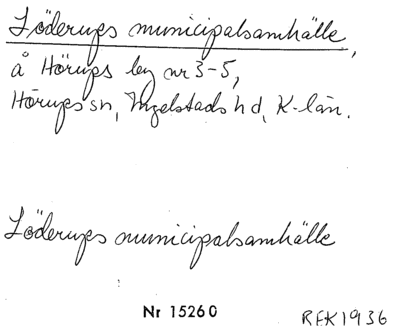 Löderups municipalsamhälle,
å Hörups by nr 3-5,
Hörups sn, Ingelstads hd, K-län.
Löderups municipalsamhälle
Nr 15260 RFK 1936